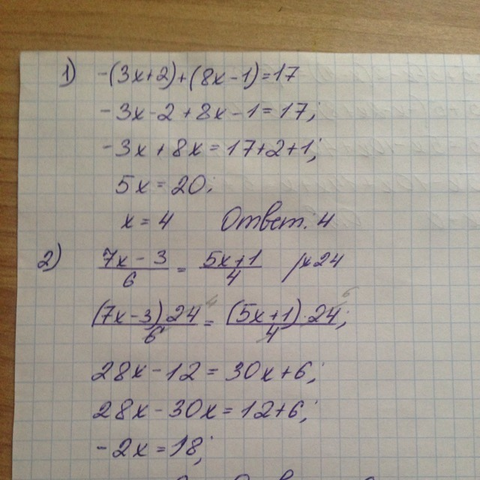 1) -(3x+2)+(8x-1)=17
-3x-2+8x-1=17;
-3x+8x=17+2+1;
5x=20;
x=4 Ответ: 4
2) (7x-3)/6 = (5x+1)/4 |×24
(7x-3)·24/6 = (5x+1)·24/4;
28x-12=30x+6;
28x-30x=12+6;
-2x=18;